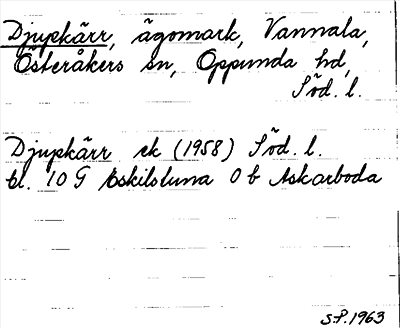 Djupkärr, ägomark, Vannala,
Österåkers sn, Oppunda hd,
Söd. l.
Djupkärr ek (1958) Söd. l.
bl. 10 G Eskilstuna 0 b Askarboda
S.P. 1963